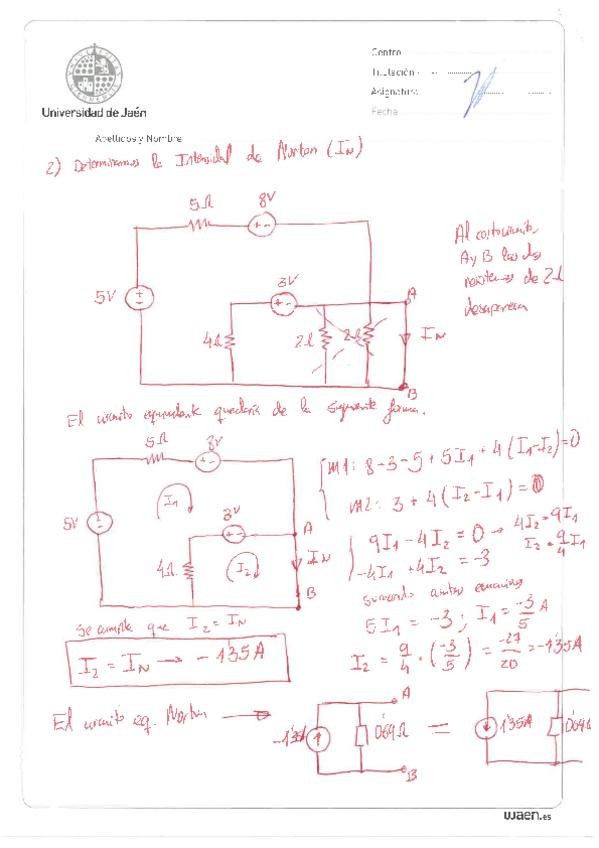 Centro
Titulación
Asignatura
Fecha
UNIVERSITAS GIENNENSIS
Universidad de Jaén
Apellidos y Nombre
2) Determinamos la Intensidad de Norton (IN)
5Ω
8V
+ -
5V
3V
+ -
4Ω
2Ω
2Ω
A
IN
B
Al cortocircuito
A y B las dos
resistencias de 2Ω
desaparecen
El circuito equivalente quedaría de la siguiente forma.
5Ω
8V
+ -
I1
5V
3V
+ -
4Ω
I2
A
IN
B
m1: 8-3-5+5I1+4(I1-I2)=0
m2: 3+4(I2-I1)=0
9I1-4I2=0 → 4I2=9I1
I2=9/4 I1
-4I1+4I2=-3
sumando ambas ecuaciones
5I1=-3; I1=-3/5 A
I2=9/4·(-3/5)=-27/20=-1'35A
Se cumple que I2=IN
I2=IN → -1'35A
El circuito eq. Norton →
-1'35A
0'69Ω
A
B
=
1'35A
0'69Ω
waen.es